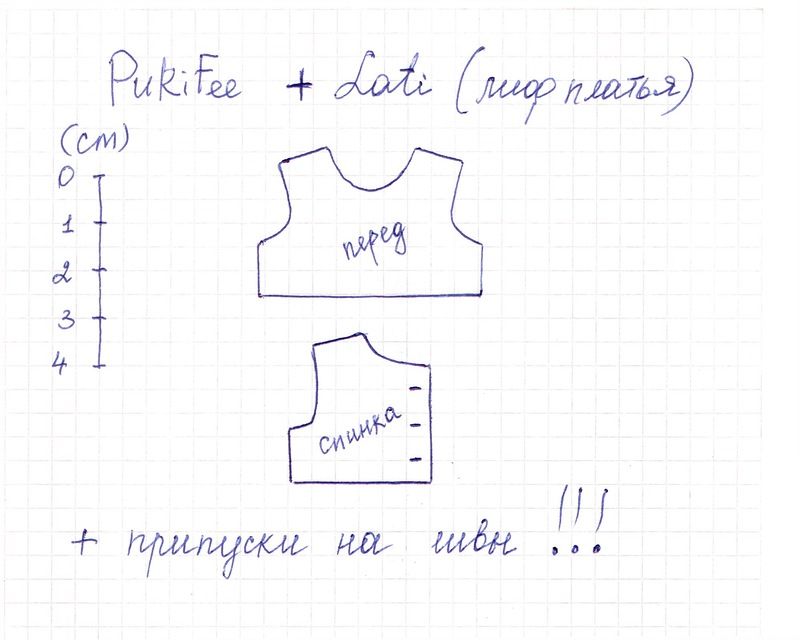 PukiFee + Lati (лиф платья)
(cm)
0
1
2
3
4
перед
спинка
+ припуски на швы !!!